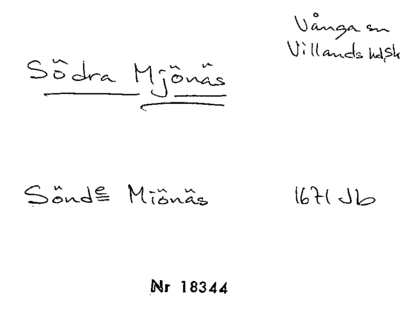 Vånga sn
Villands hd, Sk
Södra Mjönäs
Sönde Miönäs 1671 Jb
Nr 18344